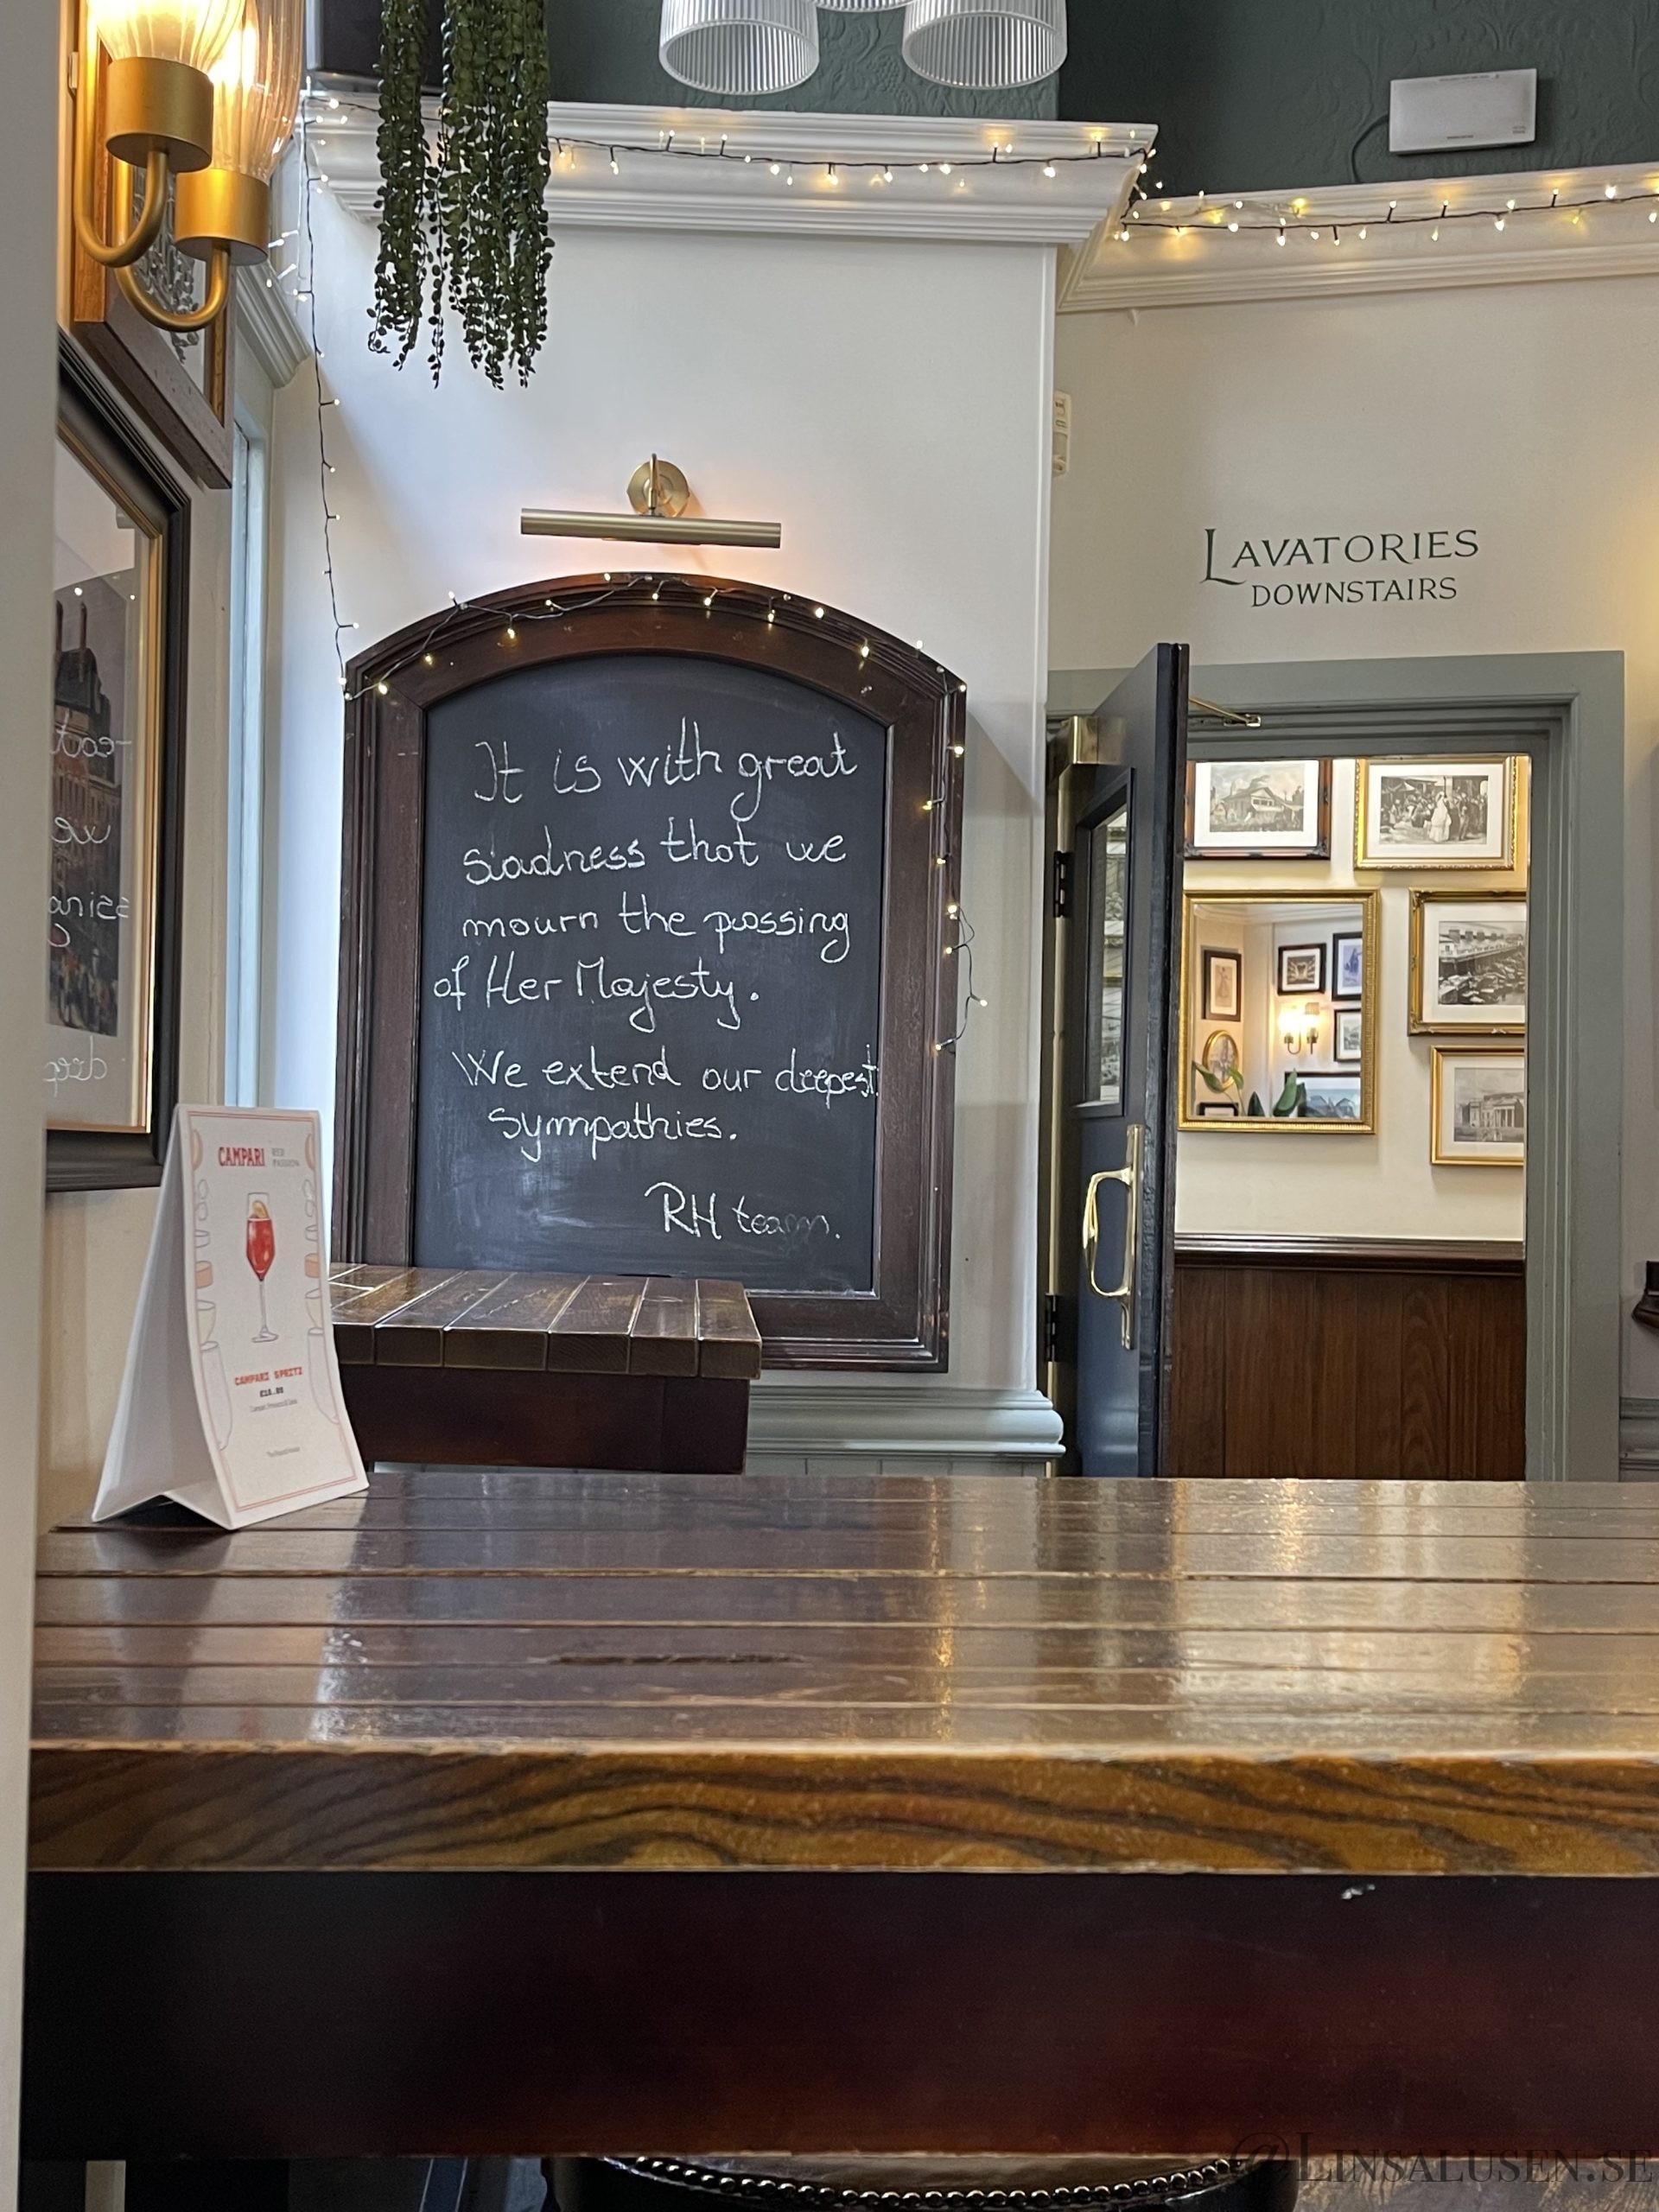 LAVATORIES
DOWNSTAIRS
It is with great
sadness that we
mourn the passing
of Her Majesty.
We extend our deepest
sympathies.
RH team.
CAMPARI RED
PASSION
CAMPARI SPRITZ
@LINSALUSEN.SE